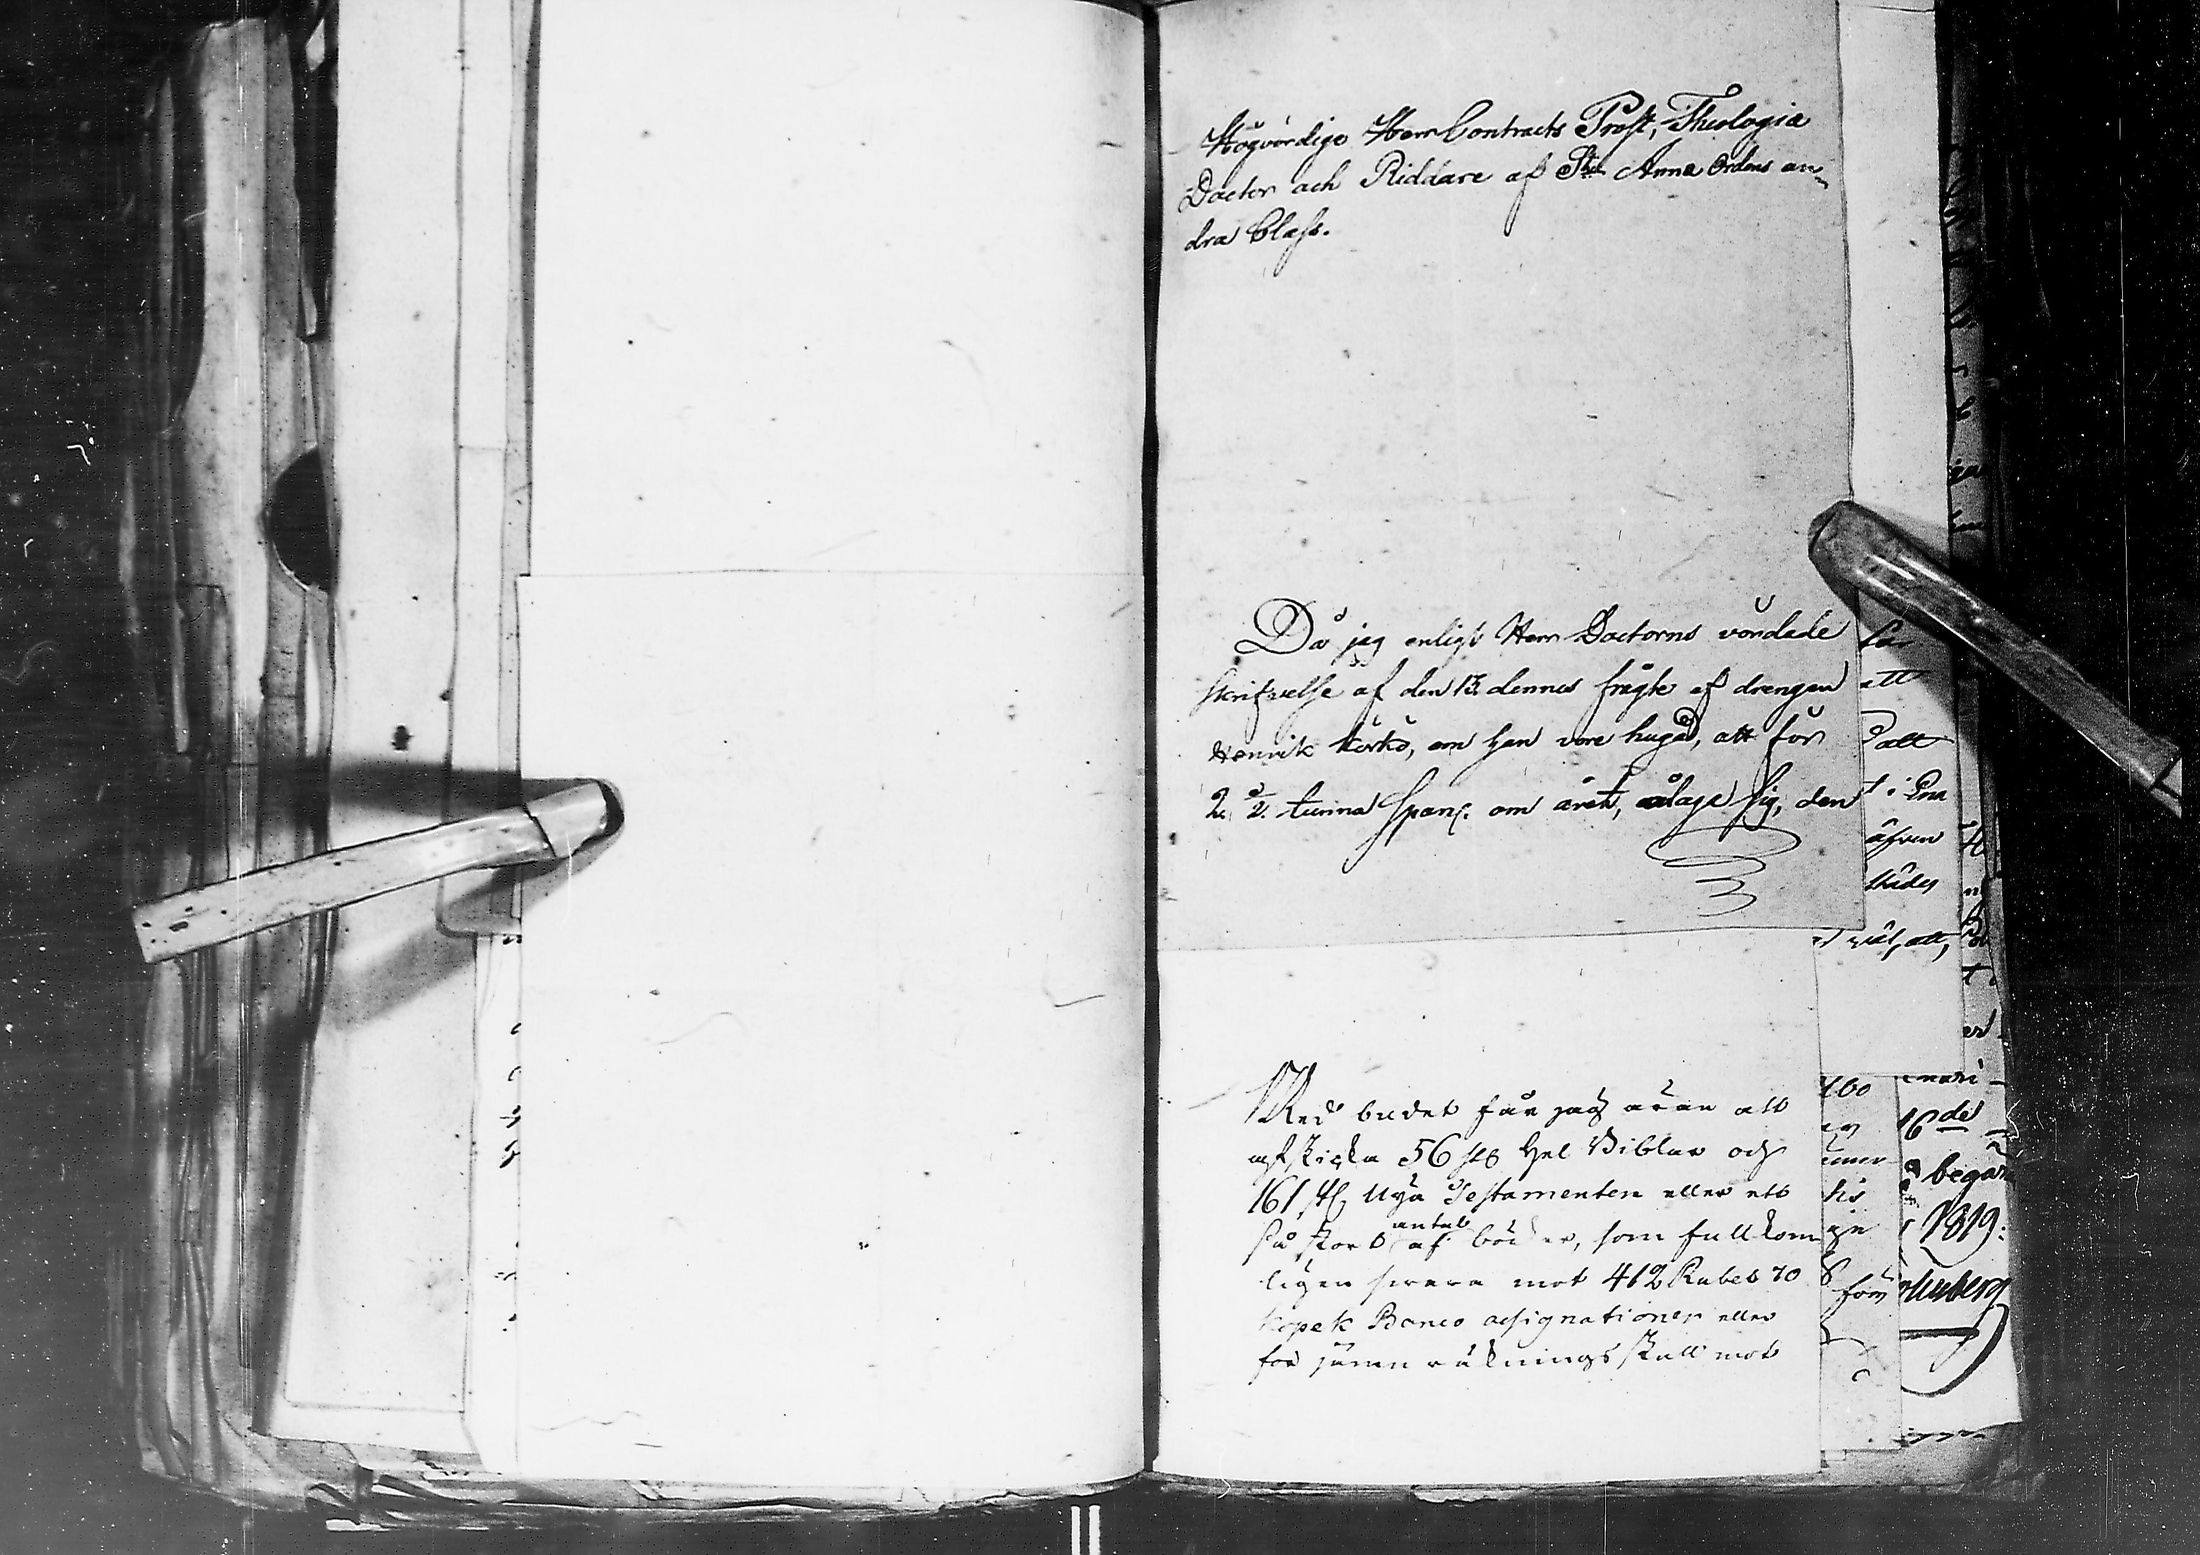 Högvördige Herr Contracts Prost, Theologiæ
Doctor och Riddare af Stæ Annæ Ordens an-
dra Class.
Då jag enligt Herr Doctorns vördade
skrifvelse af den 13. dennes frågte af drengen
Henrik om han vore hugad, att för
2 1/2 tunna Span. om året, åtaga sig, den
Med budet får jag äran att
afskicka 56 st. hel Biblar och
161 st. Nya Testamenten eller ett
så stort antal af böcker, som fullkom
ligen svara mot 412 Rubel 70
kopek Banco assignationer eller
för jämn räknings skull mot
att
att
t i
äfven
skedes
väl, att,
100
för
16de
begär
1819: